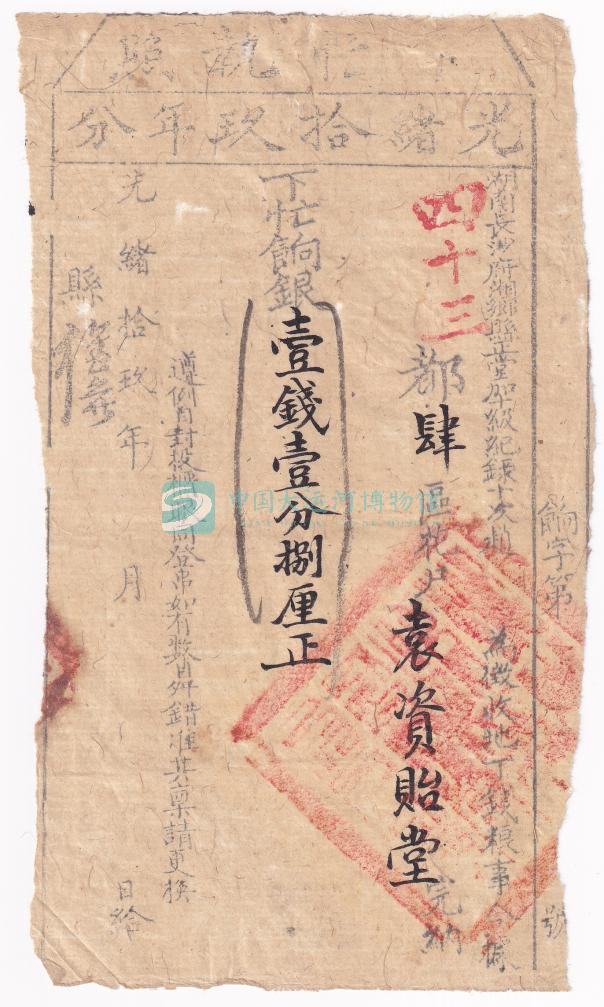 執照
光緒拾玖年分
湖南長沙府湘鄉縣正堂加級紀錄十次 為徵收地丁錢粮事今據
四十三都肆區花户袁資貽堂完納
下忙餉銀壹錢壹分捌厘正
遵例自封投櫃 登帘如有數目舛錯准其稟請更換
光緒拾玖年 月 日給
縣
餉字第 號
中国大运河博物馆